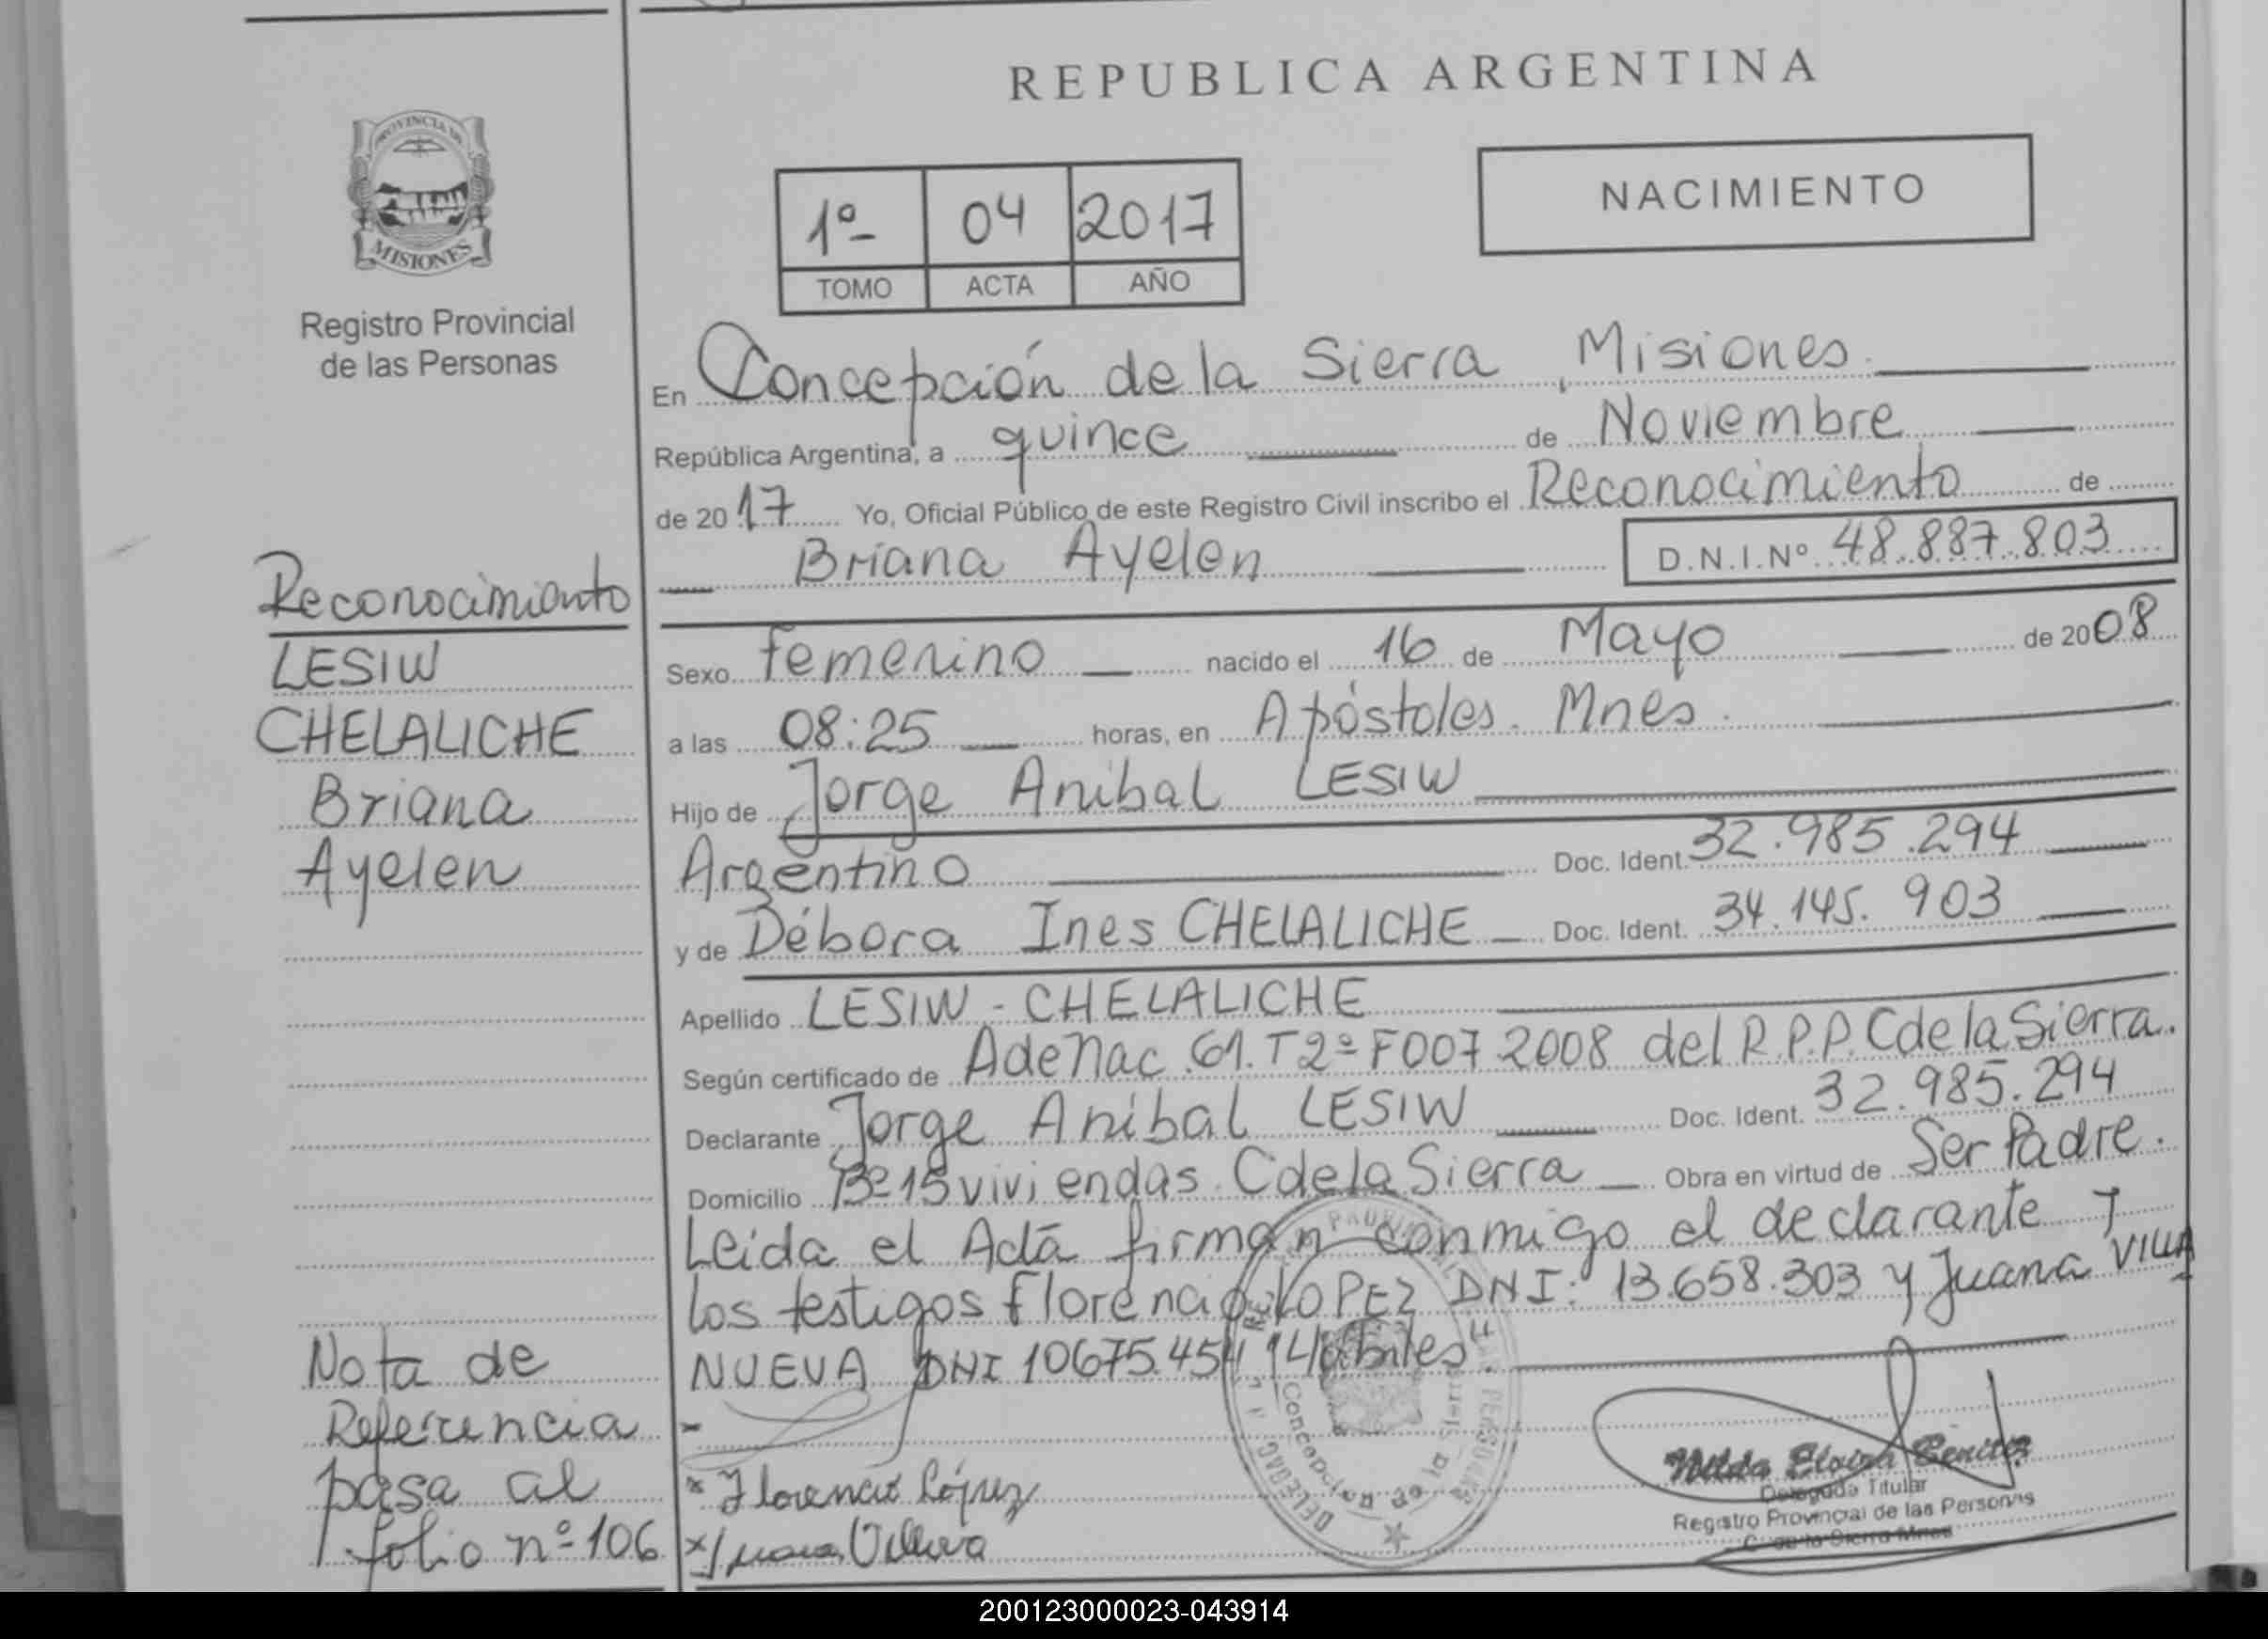 REPUBLICA ARGENTINA
PROVINCIA DE
MISIONES
Registro Provincial
de las Personas
1º 04 2017
TOMO ACTA AÑO
NACIMIENTO
En Concepción de la Sierra, Misiones
República Argentina, a quince de Noviembre
de 2017 Yo, Oficial Público de este Registro Civil inscribo el Reconocimiento de
Briana Ayelen D.N.I.Nº 48.887.803
Sexo femenino nacido el 16 de Mayo de 2008
a las 08:25 horas, en Apóstoles. Mnes.
Hijo de Jorge Anibal LESIW
Argentino Doc. Ident. 32.985.294
y de Débora Ines CHELALICHE Doc. Ident. 34.145.903
Apellido LESIW - CHELALICHE
Según certificado de AdeNac 61. T2º F007 2008 del R.P.P. CdelaSierra.
Declarante Jorge Anibal LESIW Doc. Ident. 32.985.294
Domicilio Bº 15 viviendas. CdelaSierra Obra en virtud de Ser Padre.
Leida el Acta firman conmigo el declarante y
los testigos Florencio LOPEZ DNI: 13.658.303 y Juana VILLA
NUEVA DNI 10675.454 Hábiles.
Reconocimiento
LESIW
CHELALICHE
Briana
Ayelen
Nota de
Referencia
pasa al
folio nº 106
x Florencio López
x Juana
Concepción de la Sierra
Nilda Eloisa Benitez
Delegada Titular
Registro Provincial de las Personas
C. de la Sierra Mnes
200123000023-043914